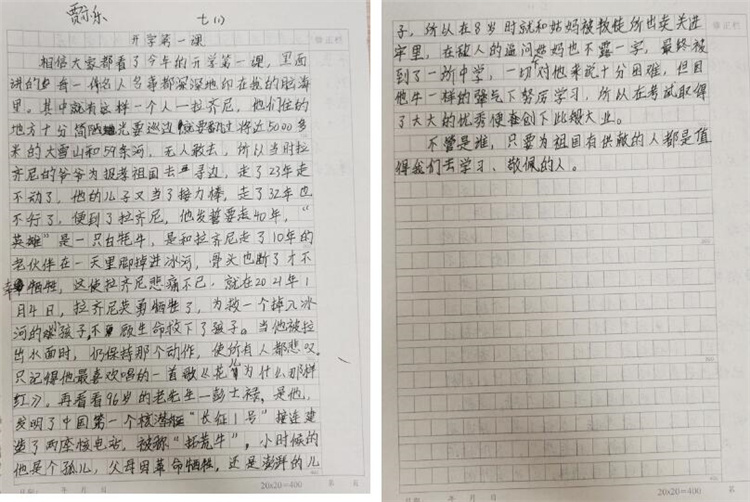 贾乐 七(1)
开学第一课
修正栏
相信大家都看了今年的开学第一课,里面
讲的每一件名人名事都深深地印在我的脑海
里。其中就有这样一个人—拉齐尼,他们住的
地方十分简陋光要巡边就要翻过将近5000多
米的大雪山和59条河,无人敢去,所以当时拉
齐尼的爷爷为报孝祖国去寻边,走了23年走
不动了,他的儿子又当了接力棒,走了32年也
不行了,便到了拉齐尼,他发誓要走40年,“
英雄”是一只白牦牛,是和拉齐尼走了10年的
老伙伴在一天里脚掉进冰河,骨头也断了才不
幸牺牲,这使拉齐尼悲痛不已,就在2021年1
月4日,拉齐尼英勇牺牲了,为救一个掉入冰
河的孩子,不顾生命救下了孩子。当他被拉
出水面时,仍保持那个动作,使所有人都悲叹,
只记得他最喜欢唱的一首歌《花儿为什么那样
红》。再看看96岁的老先生—彭士禄,是他,
发明了中国第一个核潜艇“长征1号”接连建
造了两座核电站,被称“拓荒牛”,小时候的
他是个孤儿,父母因革命牺牲,还是澎湃的儿
年 月 日
20×20=400
第 页
子,所以在8岁时就和姑妈被叛徒所出卖关进
牢里,在敌人的逼问姑妈也不露一字,最终被
到了一所中学,一切对他来说十分困难,但因
他牛一样的犟气下努历学习,所以在考试取得
了大大的优秀便在创下此艰大业。
不管是谁,只要为祖国有供献的人都是值
得我们去学习、敬佩的人。
日期: 年 月 日
20×20=400
第 页